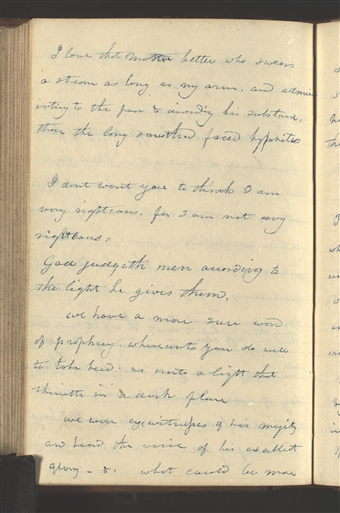 I love that man better who swears
a stream as long as my arm, and admin
istring to the poor & dividing his substance,
than the long smoothed faced hypocrites
I dont want you to think I am
very righteous. for I am not very
righteous.
God judgeth men according to
the light he gives them.
we have a more sure word
of prophecy. whereunto you do well
to take heed. as unto a light that
shineth in a dark place
we were eyewitnesses of his majesty
and heard the voice of his excellent
glory - &. what could be more